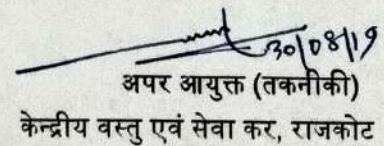 30/08/19
अपर आयुक्त (तकनीकी)
केन्द्रीय वस्तु एवं सेवा कर, राजकोट